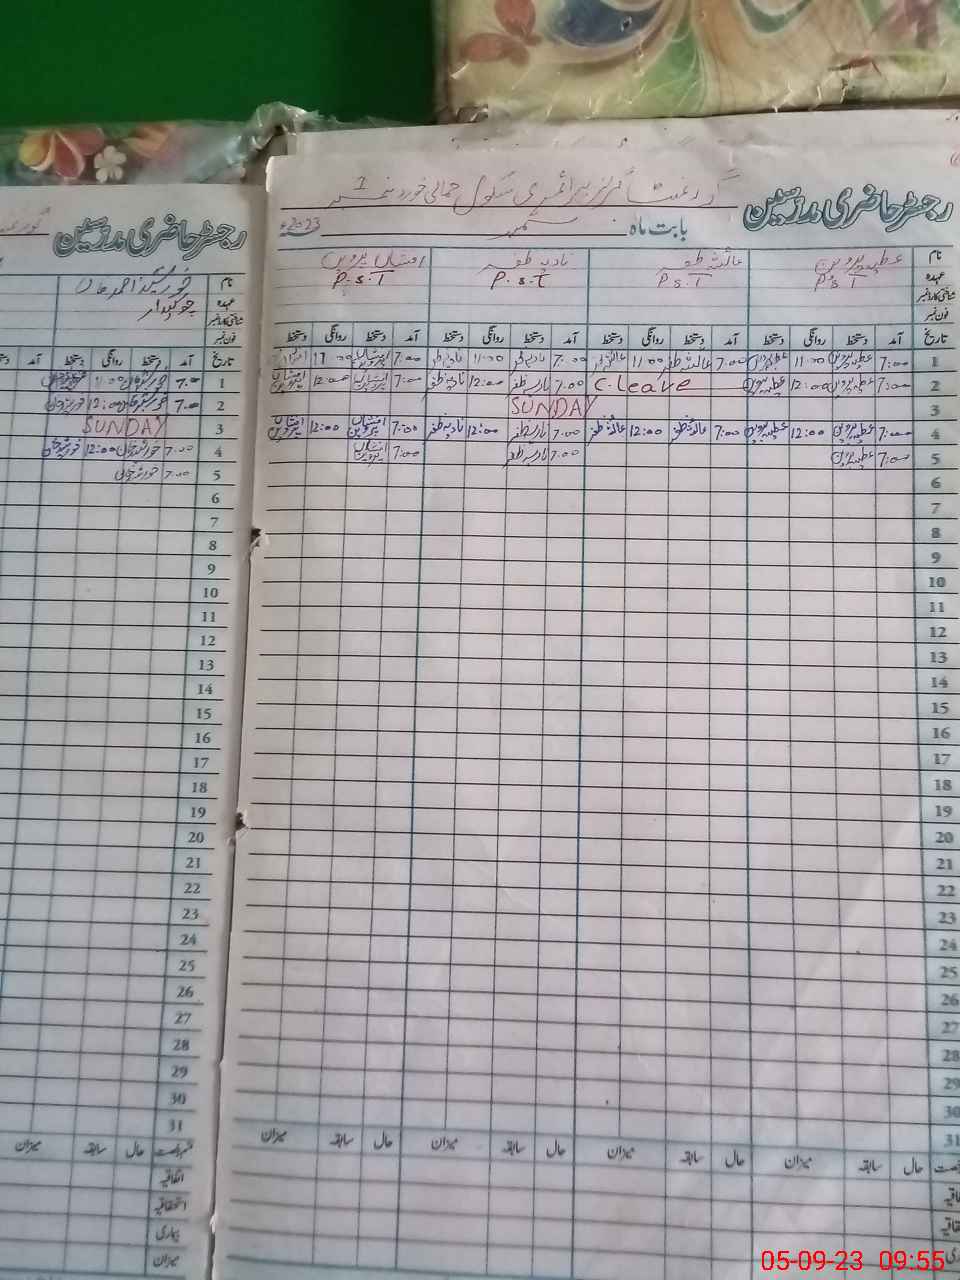 گورنمنٹ گرلز پرائمری سکول جمالی خورد نمبر 1
رجسٹر حاضری مدرسین
بابت ماہ ستمبر 2023ء
نام عطیہ پروین عائشہ ظفر نادیہ ظفر افشاں پروین
عہدہ P.S.T P.S.T P.S.T P.S.T
شناختی کارڈ نمبر
فون نمبر
تاریخ آمد دستخط روانگی دستخط آمد دستخط روانگی دستخط آمد دستخط روانگی دستخط آمد دستخط روانگی دستخط
1 7:00 عطیہ پروین 11:00 عطیہ پروین 7:00 عائشہ ظفر 11:00 عائشہ ظفر 7:00 نادیہ ظفر 11:00 نادیہ ظفر 7:00 افشاں پروین 11:00 افشاں پروین
2 7:00 عطیہ پروین 12:00 عطیہ پروین C.Leave 7:00 نادیہ ظفر 12:00 نادیہ ظفر 7:00 افشاں پروین 12:00 افشاں پروین
3 SUNDAY
4 7:00 عطیہ پروین 12:00 عطیہ پروین 7:00 عائشہ ظفر 12:00 عائشہ ظفر 7:00 نادیہ ظفر 12:00 نادیہ ظفر 7:00 افشاں پروین 12:00 افشاں پروین
5 7:00 عطیہ پروین 7:00 نادیہ ظفر 7:00 افشاں پروین
6
7
8
9
10
11
12
13
14
15
16
17
18
19
20
21
22
23
24
25
26
27
28
29
30
31
حال سابقہ میزان حال سابقہ میزان حال سابقہ میزان حال سابقہ میزان
رجسٹر حاضری مدرسین
نام خورشید احمد خان
عہدہ چوکیدار
شناختی کارڈ نمبر
فون نمبر
تاریخ آمد دستخط روانگی دستخط آمد
1 7.00 11:00
2 7.00 12:00
3 SUNDAY
4 7.00 12:00
5 7.00
6
7
8
9
10
11
12
13
14
15
16
17
18
19
20
21
22
23
24
25
26
27
28
29
30
31
حال سابقہ میزان
اتفاقیہ
استحقاقیہ
بیماری
میزان
05-09-23 09:55